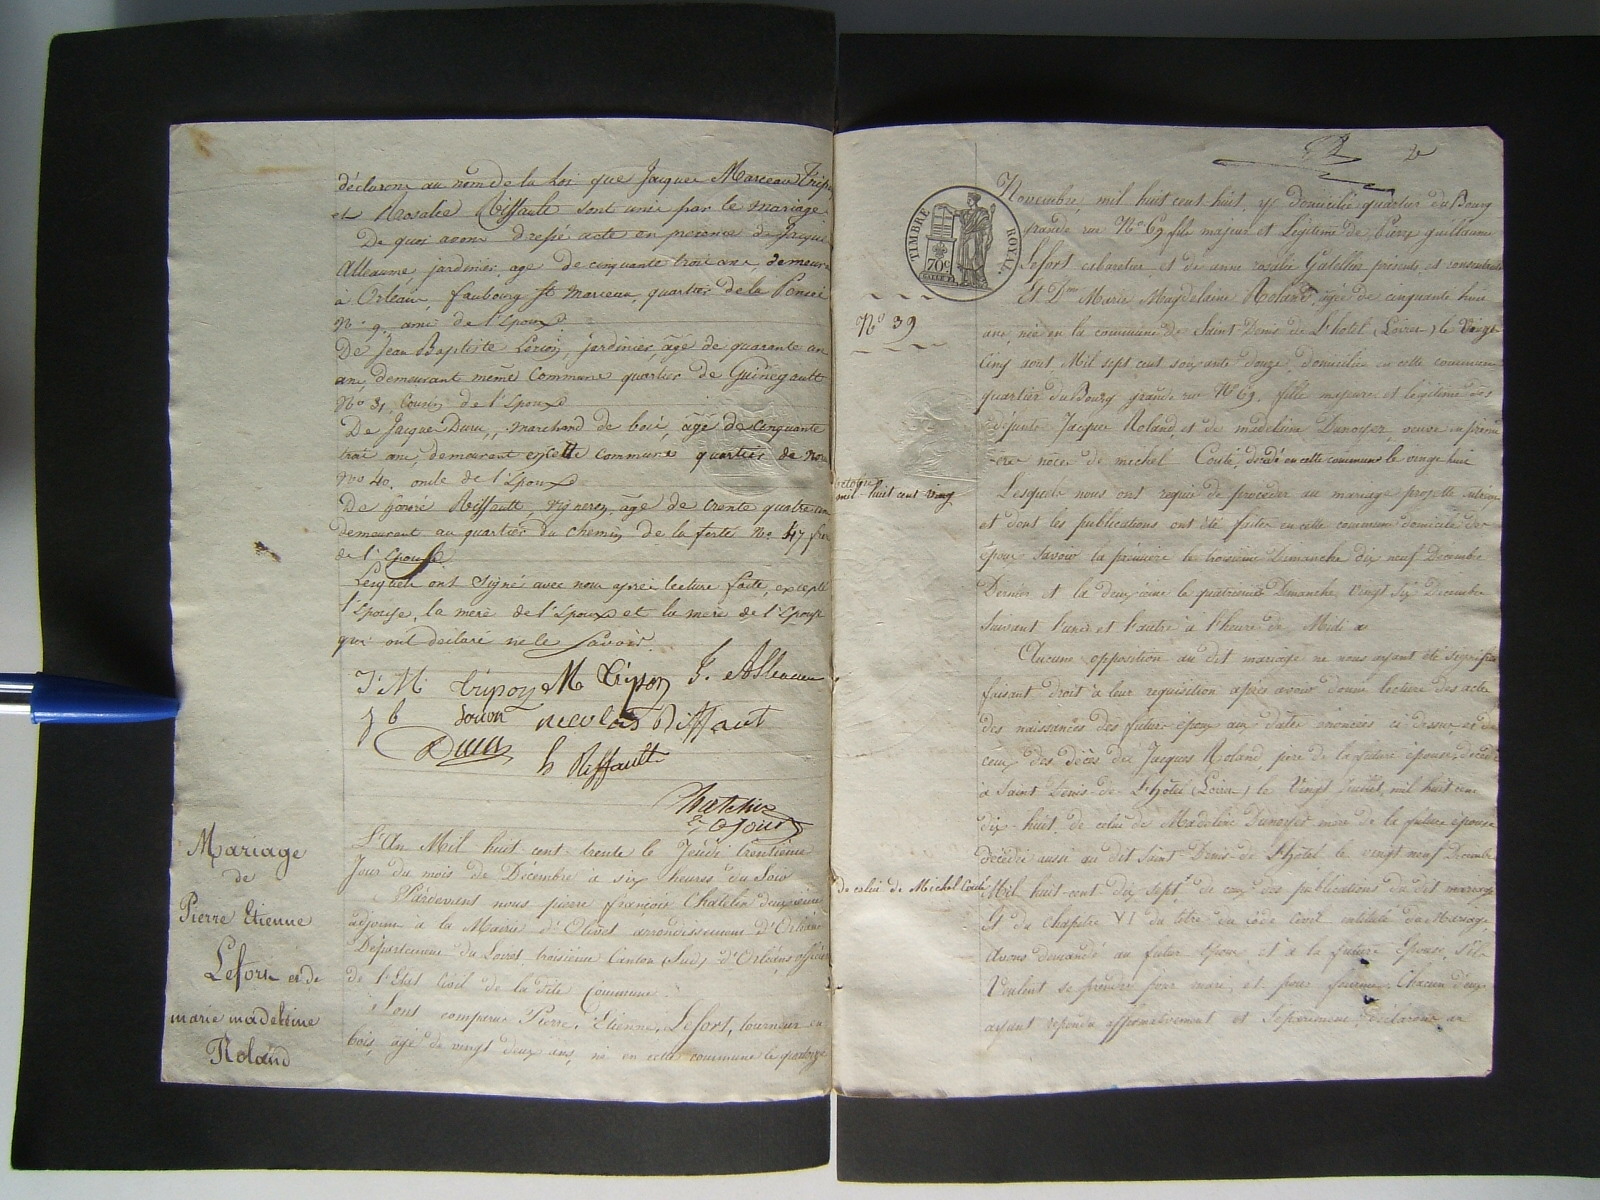 déclarons au nom de la Loi que Jacques Marceau Tripo
et Rosalie Riffault sont unis par le mariage
De quoi avons dressé acte en presence de Jacque
Alleaume jardinier, age de cinquante trois ans, demeura
à Orléans, faubourg St Marceau, quartier de la
No 9, ami de l'Epoux
De Jean Baptiste jardinier, âgé de quarante un
ans demeurant même Commune quartier de Guinegault
No 31, Cousin de l'Epoux
De Jacque Duru, marchand de bois, âgé de cinquante
trois ans, demeurant en cette Commune quartier de
No 40, oncle de l'Epoux
De Riffault, vigneron, âgé de trente quatre ans
demeurant au quartier du chemin de la ferté No 47
de l'Epouse
Lesquels ont signé avec nous après lecture faite, excepté
l'Epouse, la mère de l'Epoux et la mère de l'Epouse
qui ont declaré ne le savoir.
J. M. Tripon M Tripon J. Alleaume
j b nicolas Riffaut
Duru h Riffault
Mariage
de
Pierre Etienne
Lefort et de
marie madeleine
Roland
L'An Mil huit cent trente le Jeudi trentième
Jour du mois de Décembre à six heures du Soir
Pardevant nous pierre françois Chatelin deuxième
adjoint à la Mairie d'Olivet arrondissement d'Orléans
Département du Loiret troisième Canton (Sud) d'Orléans officier
de l'Etat Civil de la dite Commune.
Sont comparus Pierre, Etienne, Lefort, tourneur en
bois, âgé de vingt deux ans, né en cette commune le quatorze
TIMBRE ROYAL
70c
No 39
Novembre, mil huit cent huit, y domicilié quartier du Bourg
grande rue No 69 fils majeur et Légitime de Pierre guillaume
Lefort cabaretier et de anne rosalie Gatellier présents et consentants
Et Dme Marie Magdelaine Roland, âgée de cinquante huit
ans, née en la commune de Saint Denis de L'hotel (Loiret) le Vingt
Cinq août Mil sept cent soixante douze, domiciliée en cette commune
quartier du Bourg grande rue No 69, fille majeure et légitime des
défunts Jacques Roland, et de madeleine Dunoyer, veuve en premi
ère noces de michel Couté, décédé en cette commune le vingt huit
octobre
mil huit cent vingt
Lesquels nous ont requis de procéder au mariage projetté entre eux
et dont les publications ont été faites en cette commune domicile des
époux Savoir la première le troisième Dimanche dix neuf Decembre
Dernier et la deuxième le quatrième Dimanche Vingt Six Decembre
Suivant l'une et l'autre à l'heure de Midi
Aucune opposition au dit mariage ne nous ayant été signifiée
faisant droit à leur requisition après avoir donné lecture des actes
des naissances des futurs époux aux dates énoncées ci dessus, et de
ceux des décès de Jacques Roland, père de la future épouse, décédé
à Saint Denis de L'hôtel (Loiret) le Vingt mil huit cent
dix-huit, de celui de Madeleine Dunoyer mère de la future épouse
décédée aussi au dit Saint-Denis-de-L'hôtel le vingt neuf Decembre
de celui de Michel Couté
Mil huit-cent dix sept, de ceux des publications du dit mariage
Et du Chapitre VI du titre du Code Civil intitulé du Mariage,
Avons demandé au futur époux et à la future Epouse, s'ils
Veulent se prendre pour mari et pour femme, Chacun d'eux
ayant repondu affirmativement et Séparément, déclarons au